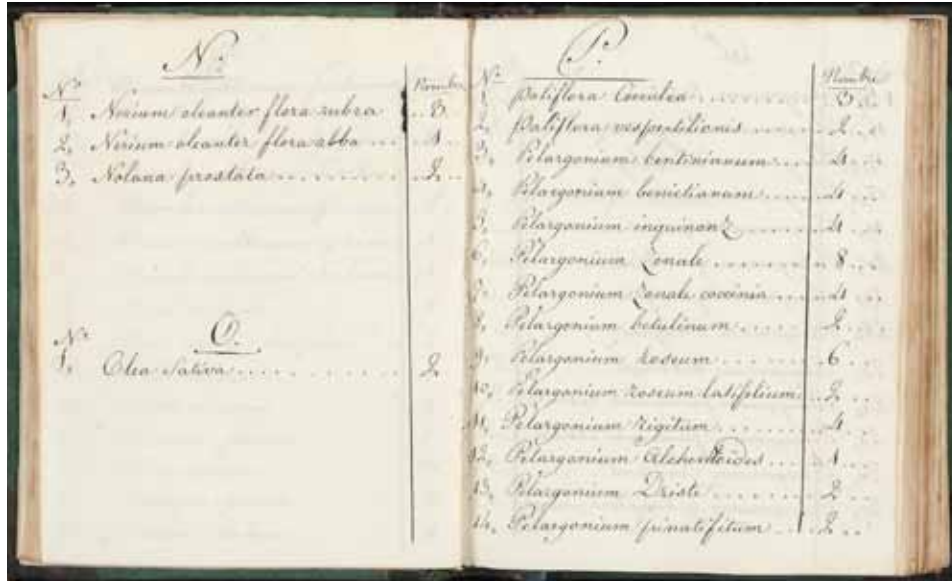 N.
No. Nombre
1, Nerium oleanter flora rubra .. 3.
2, Nerium oleanter flora abba ... 1..
3, Nolana prostata .......... 2..
O.
No.
1, Olea Sativa ........... 2
P.
No. Nombre
1 Pasiflora Cerulea .......... 3.
2, Pasiflora vespertilionis ...... 2..
3, Pelargonium bentinianum .... 4...
4, Pelargonium benictianam ..... 4...
5, Pelargonium inquinanz ...... 4...
6, Pelargonium Zonale ......... 8...
7, Pelargonium Zonale coccinia .... 4...
8, Pelargonium betulinum ...... 2...
9, Pelargonium roseum ...... 6...
10, Pelargonium roseum latifolium .. 2...
11, Pelargonium rigitum ....... 4...
12, Pelargonium Alchemoides .... 1...
13, Pelargonium Driste ....... 2...
14, Pelargonium pinatifitum ... 2..